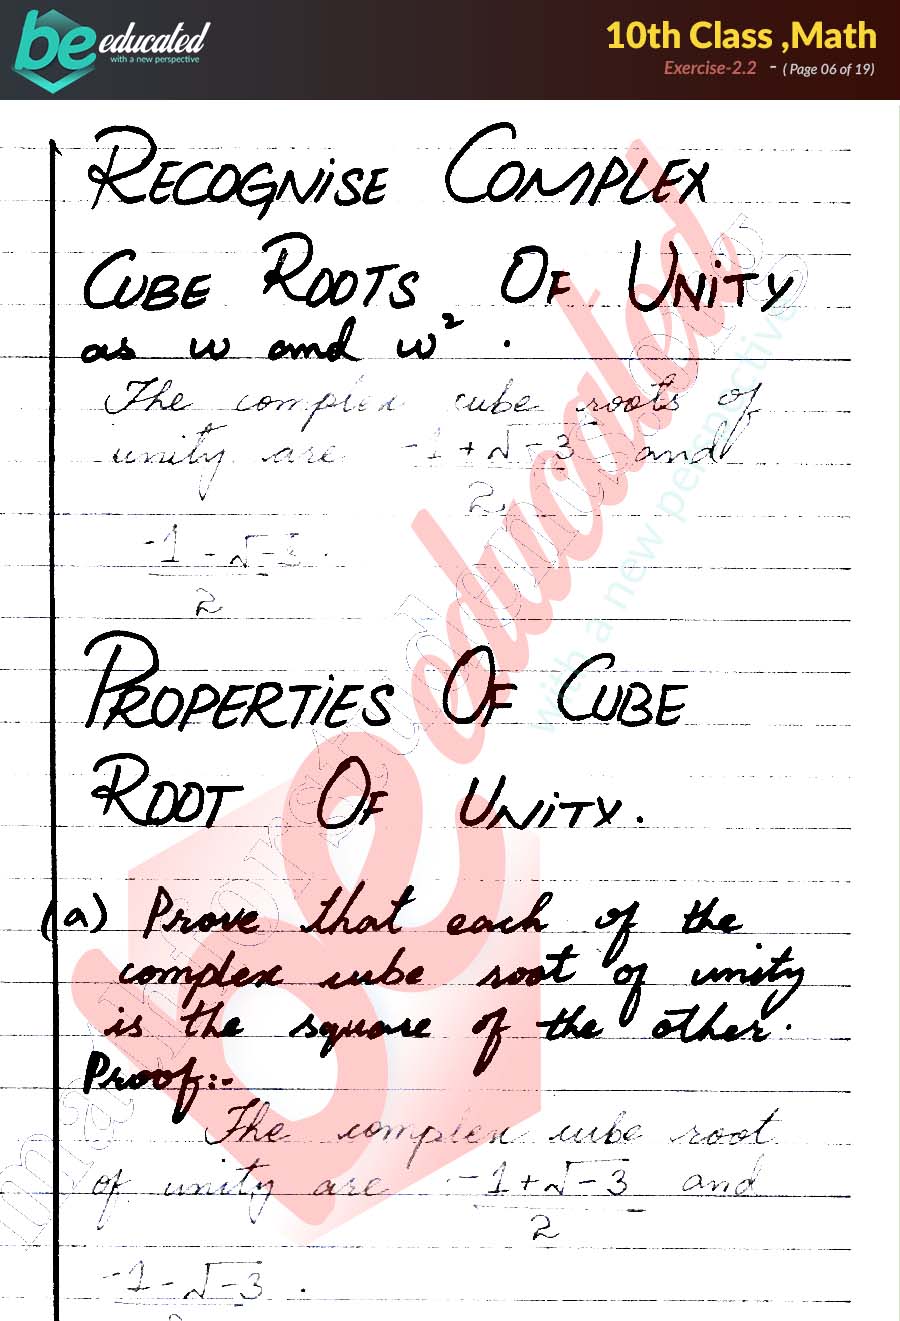 be educated
with a new perspective
10th Class ,Math
Exercise-2.2 - ( Page 06 of 19)
RECOGNiSE COMPLEX
CUBE ROOTS OF UNiTY
as w and w².
The complex cube roots of
unity are -1+√-3 and
2
-1-√-3.
2
PROPERTiES OF CUBE
ROOT OF UNiTY.
(a) Prove that each of the
complex cube root of unity
is the square of the other.
Proof:-
The complex cube root
of unity are -1+√-3 and
2
-1-√-3.
be educated
with a new perspective